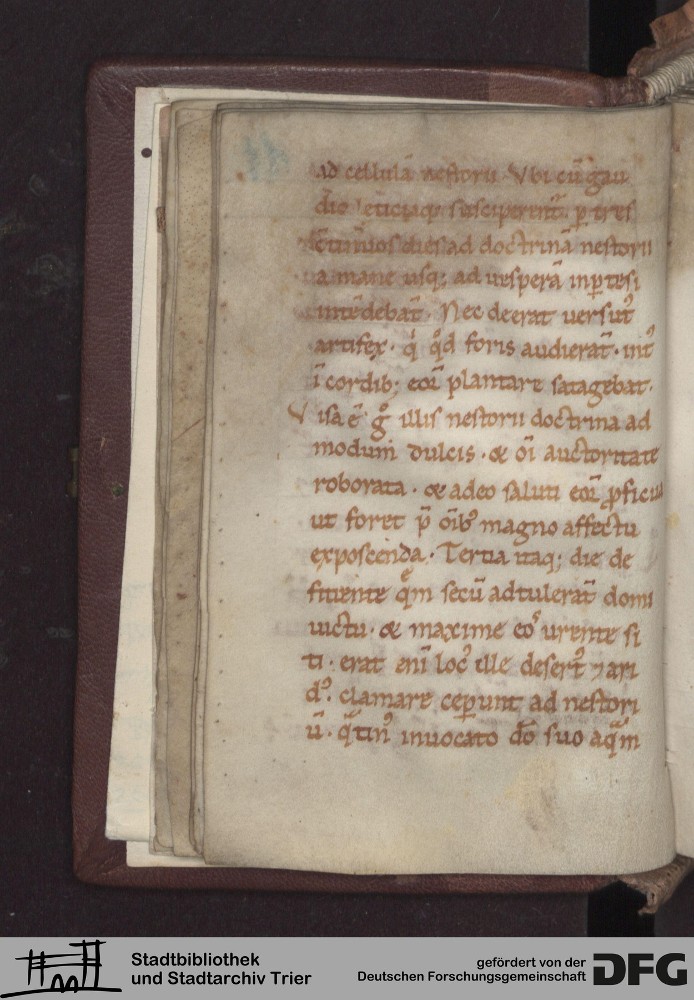 ad cellulā nestorii Vbi cū gau
dio susciperent᷑. p̱ tres
dies ad doctrinā nestorii
a mane usq; ad uesperā
intēdebāt. Nec deerat uersut᷒
artifex. qͥ qͦd foris audierāt. int᷒
ī cordib; eoꝝ plantare satagebat.
Visa ē gͦ illis nestorii doctrina ad
modum dulcis. & oī auctoritate
roborata. & adeo saluti eoꝝ
ut foret p̄ oīb᷒ magno affectu
exposcenda. Tertia itaq; die de
ficiente qᷓm secū adtulerāt domi
uictu. & maxime eo᷒ urente si
ti. erat enī loc᷒ ille desert᷒ ⁊ ari
d᷒. clamare ceperunt ad nestori
ū. qᷓtin᷒ inuocato dō suo aqᷓm
Stadtbibliothek
und Stadtarchiv Trier
gefördert von der
Deutschen Forschungsgemeinschaft
DFG